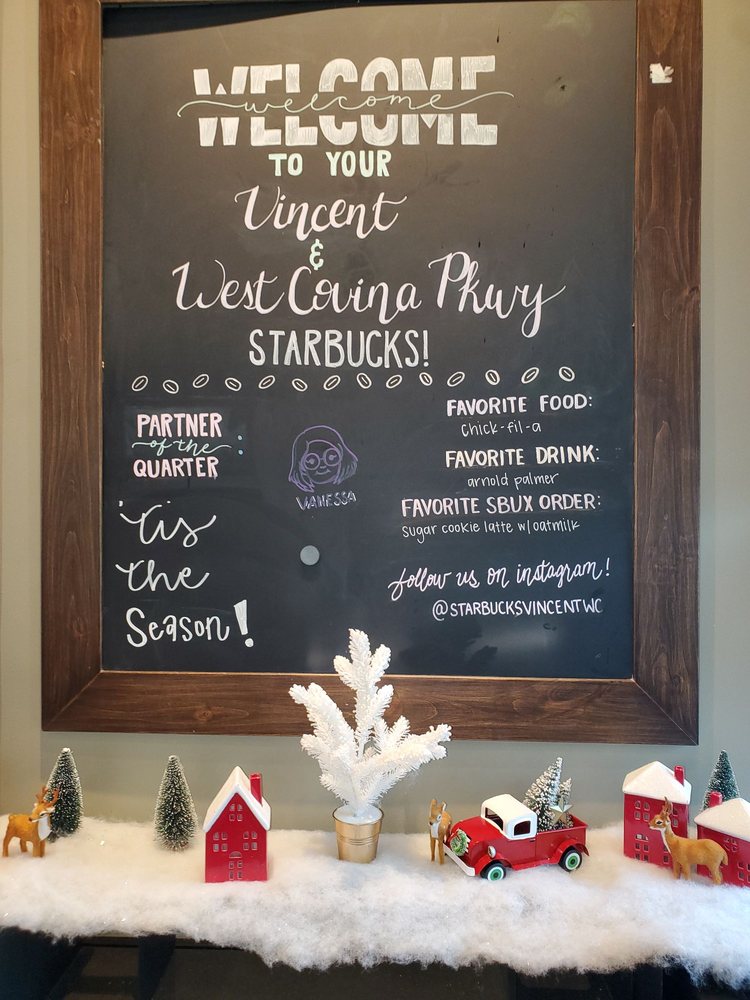 WELCOME
welcome
TO YOUR
Vincent
&
West Covina Pkwy
STARBUCKS!
PARTNER
of the :
QUARTER
VANESSA
FAVORITE FOOD:
chick-fil-a
FAVORITE DRINK:
arnold palmer
FAVORITE SBUX ORDER:
sugar cookie latte w/oatmilk
'tis
the
Season!
follow us on instagram!
@STARBUCKSVINCENTWC